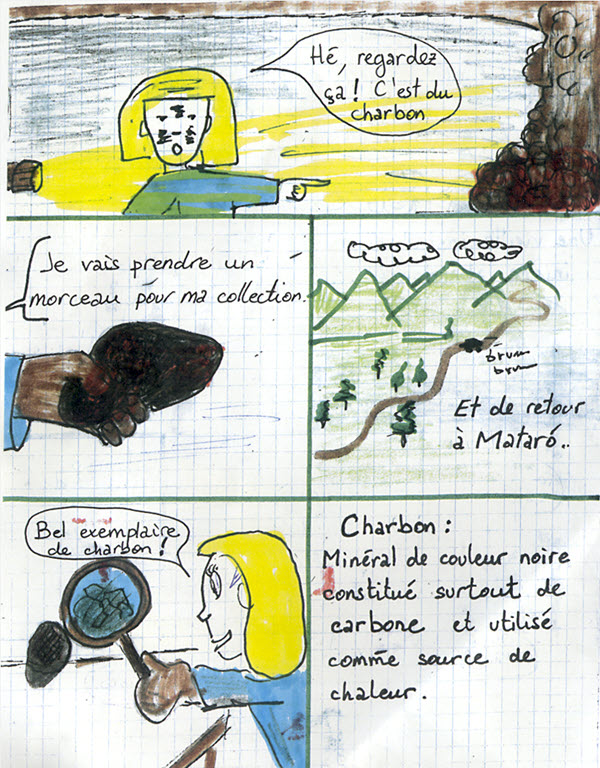 Hé, regardez
ça! C'est du
charbon
Je vais prendre un
morceau pour ma collection.
brum
brum
Et de retour
à Mataró..
Bel exemplaire
de charbon!
Charbon:
Minéral de couleur noire
constitué surtout de
carbone et utilisé
comme source de
chaleur.